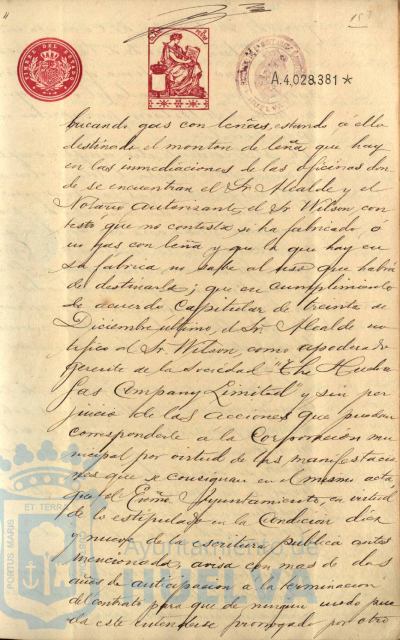 15
A.4,028,381*
TIMBRE DEL ESTADO
bricando gas con leñas, estando a ello
destinado el monton de leña que hay
en las inmediaciones de las oficinas don
de se encuentran el Sr. Alcalde y el
Notario autorizante, el Sr. Wilson, con
testó que no contesta si ha fabricado o
no gas con leña y que la que hay en
la fábrica, no sabe al uso que habrá
de destinarla; que en cumplimiento
de acuerdo Capitular de treinta de
Diciembre último, el Sr. Alcalde no
tifica al Sr. Wilson, como apoderado
gerente de la Sociedad "The Huelva
Gas Company Limited" y sin per
juicio de las acciones que puedan
corresponderle a la Corporacion mu
nicipal por virtud de las manifestacio
nes que se consignan en el mismo acta,
que el Excmo Ayuntamiento, en virtud
de lo estipulado en la Condicion diez
y nueve de la escritura pública antes
mencionada, avisa con mas de dos
años de anticipacion a la terminacion
del contrato para que de ningun modo pue
da este entenderse prorrogado por otro
PORTUS MARIS
ET TERRAE
Ayuntamiento de
HUELVA